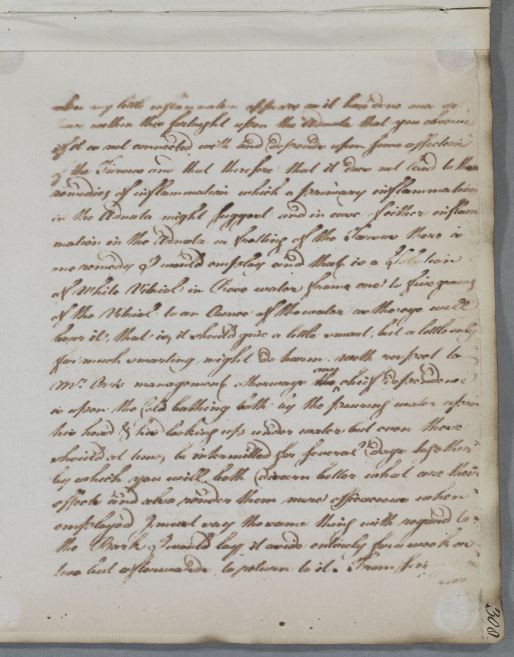 When any little inflammation appears as it has done once or
twice within this fortnight upon the Adnata that you observe
if it is not connected with and depends upon some affection
of the Tarsus and that therefore that it does not lead to the
remedies of inflammation which a primary inflammation
in the Adnata might suggest and in case of either inflam
mation in the Adnata or fretting of the Tarsus there is
one remedy I would employ and that is a Solution
of White Vitriol in Rose water from one to five grains
of the Vitriol to an Ounce of the water as the eye will
bear it, that is, it should give a little smart, but a little only
for much smarting might do harm. With respect to
Mr. management otherways the chief dependence
is upon the Cold bathing both by the pouring water upon
his head & his looking up under water but even these
should at times be intermitted for several days together
by which you will both discern better what are their
effects and also render them more efficacious when
employed I must say the same thing with regard to
the Bark I would lay it aside entirely for a week or
two but afterwards to return to it. From
300